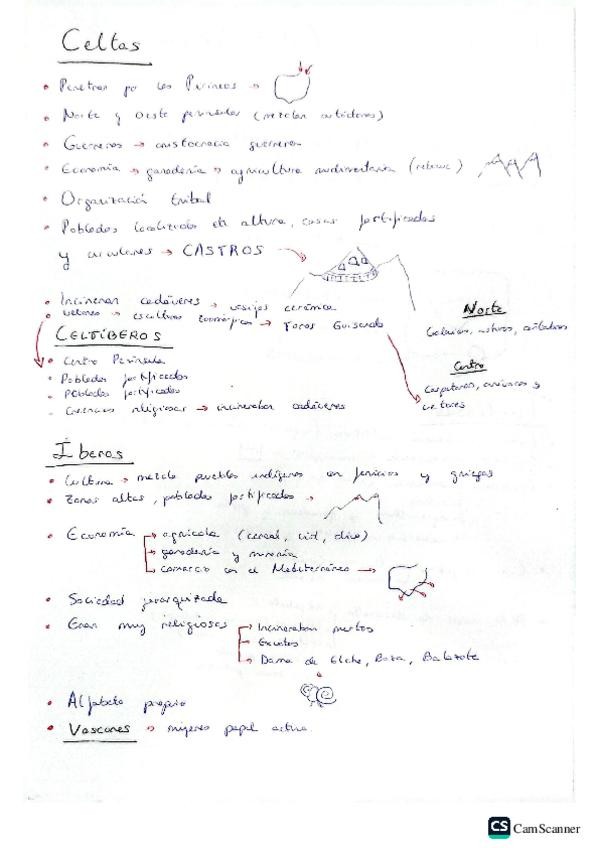 Celtas
• Penetran por los Pirineos →
• Norte y Oeste peninsular (mezclan
• Guerreros → aristocracia guerrera
• Economía → ganadería → agricultura rudimentaria
• Organización tribal
• Poblados localizados en altura, casas fortificadas
y circulares → CASTROS →
• Incineran cadáveres → vasijas cerámica
• Vetones → esculturas zoomórficas → Toros Guisando
Norte
Galaicos, astures, cántabros
Centro
Carpetanos, arévacos y
vetones
CELTÍBEROS
• Centro Península
• Poblados fortificados
• Poblados fortificados
- Creencias religiosas → incineraban cadáveres
Íberos
• Cultura → mezcla pueblos indígenas con fenicios y griegos
• Zonas altas, poblados fortificados →
• Economía → agrícola (cereal, vid, olivo)
→ ganadería y minería
→ comercio con el Mediterráneo →
• Sociedad jerarquizada
• Eran muy religiosos → Incineraban muertos
→ Exvotos
→ Dama de Elche, Baza, Balazote
• Alfabeto propio
• Vascones → mujeres papel activo
CS CamScanner